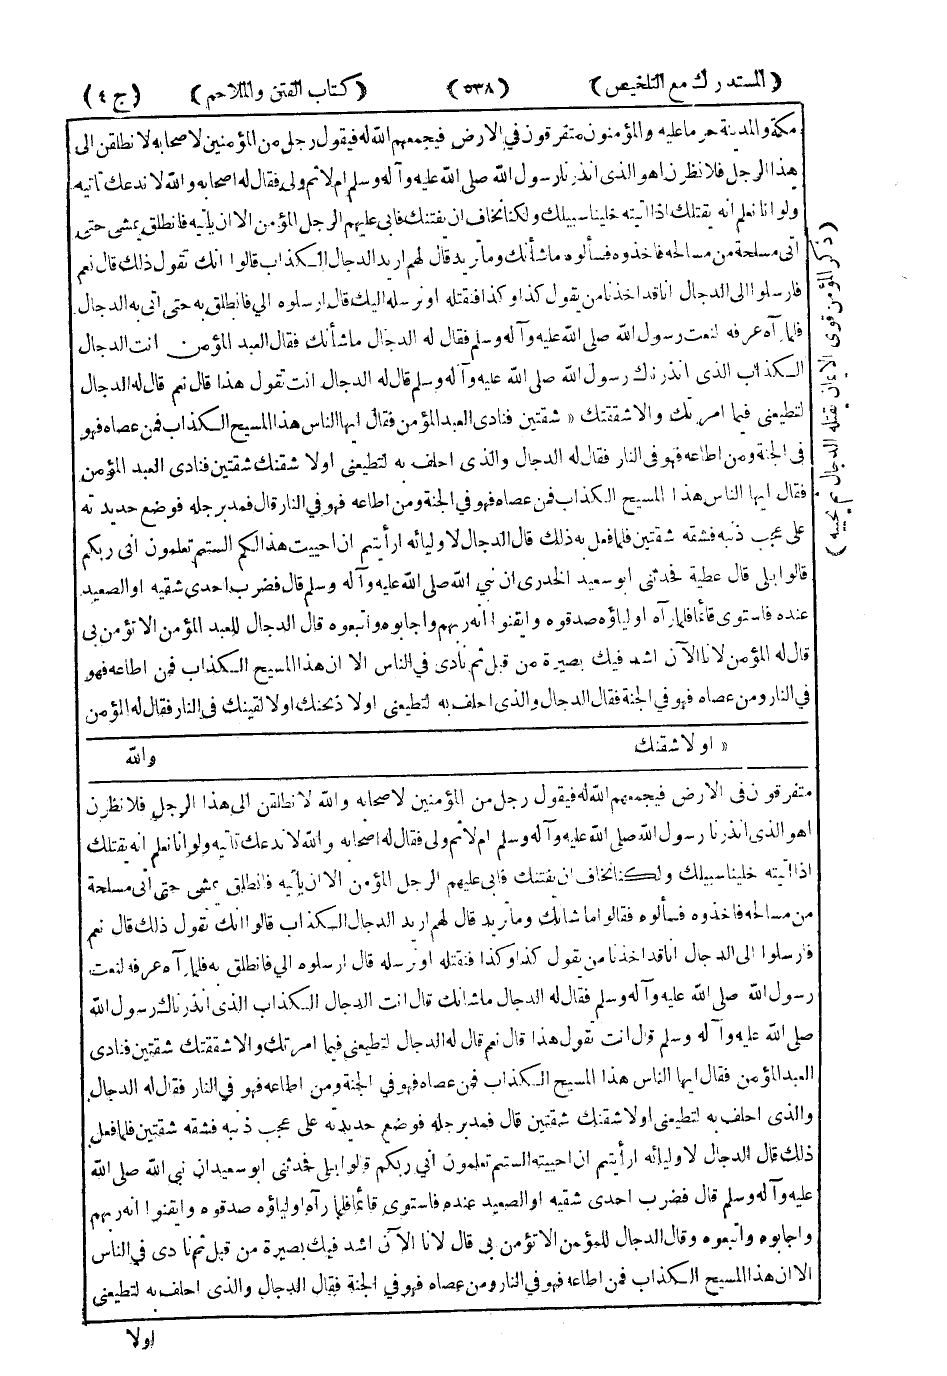 (المستدرك مع التلخيص) (٥٣٨) (كتاب الفتن والملاحم) (ج ٤)
مكة والمدينة حرما عليه والمؤمنون متفرقون في الارض فيجمعهم الله له فيقول رجل من المؤمنين لاصحابه لانطلقن الى
هذا الرجل فلانظرن اهو الذى انذرنا رسول الله صلى الله عليه وآله وسلم ام لا ثم ولى فقال له اصحابه والله لا ندعك تاتيه
ولو انا نعلم انه يقتلك اذا اتيته خلينا سبيلك ولكنا نخاف ان يفتنك فابى عليهم الرجل المؤمن الا ان يأتيه فانطلق يمشى حتى
اتى مسلحة من مسالحه فاخذوه فسألوه ما شأنك وما تريد قال لهم اريد الدجال الكذاب قالوا انك تقول ذلك قال نعم
فارسلوا الى الدجال انا قد اخذنا من يقول كذا وكذا فنقتله او نرسله اليك قال ارسلوه الي فانطلق به حتى اتى به الدجال
فلما رآه عرفه لنعت رسول الله صلى الله عليه وآله وسلم فقال له الدجال ما شأنك فقال العبد المؤمن انت الدجال
الكذاب الذى انذرناك رسول الله صلى الله عليه وآله وسلم قال له الدجال انت تقول هذا قال نعم قال له الدجال
لتطيعنى فيما امرتك والا شققتك « شقتين فنادى العبد المؤمن فقال ايها الناس هذا المسيح الكذاب فمن عصاه فهو
فى الجنة ومن اطاعه فهو فى النار فقال له الدجال والذى احلف به لتطيعنى اولا شقنك شقتين فنادى العبد المؤمن
فقال ايها الناس هذا المسيح الكذاب فمن عصاه فهو في الجنة ومن اطاعه فهو في النار قال فمد برجله فوضع حديدته
على عجب ذنبه فشقه شقتين فلما فعل به ذلك قال الدجال لاوليائه ارأيتم ان احييت هذا لكم الستم تعلمون انى ربكم
قالوا بلى قال عطية فحدثنى ابو سعيد الخدرى ان نبي الله صلى الله عليه وآله وسلم قال فضرب احدى شقيه او الصعيد
عنده فاستوى قائما فلما رآه اولياؤه صدقوه وايقنوا انه ربهم واجابوه واتبعوه قال الدجال للعبد المؤمن الا تؤمن بى
قال له المؤمن لانا الآن اشد فيك بصيرة من قبل ثم نادى في الناس الا ان هذا المسيح الكذاب فمن اطاعه فهو
في النار ومن عصاه فهو في الجنة فقال الدجال والذى احلف به لتطيعنى اولا ذبحنك اولا لقينك فى النار فقال له المؤمن
« اولا شقنك
والله
(ذكر المؤمن قوى الايمان يقتله الدجال ثم يحييه)
متفرقون فى الارض فيجمعهم الله له فيقول رجل من المؤمنين لاصحابه والله لانطلقن الى هذا الرجل فلانظرن
اهو الذى انذرنا رسول الله صلى الله عليه وآله وسلم ام لا ثم ولى فقال له اصحابه والله لا ندعك تاتيه ولو انا نعلم انه يقتلك
اذا اتيته خلينا سبيلك ولكنا نخاف ان يفتنك فابى عليهم الرجل المؤمن الا ان يأتيه فانطلق يمشى حتى اتى مسلحة
من مسالحه فاخذوه فسألوه فقالوا ما شانك وما تريد قال لهم اريد الدجال الكذاب قالوا انك تقول ذلك قال نعم
فارسلوا الى الدجال انا قد اخذنا من يقول كذا وكذا فنقتله او نرسله قال ارسلوه الي فانطلق به فلما رآه عرفه لنعت
رسول الله صلى الله عليه وآله وسلم فقال له الدجال ما شانك قال انت الدجال الكذاب الذى انذرناك رسول الله
صلى الله عليه وآله وسلم قال انت تقول هذا قال نعم قال له الدجال لتطيعنى فيما امرتك والا شققتك شقتين فنادى
العبد المؤمن فقال ايها الناس هذا المسيح الكذاب فمن عصاه فهو في الجنة ومن اطاعه فهو في النار فقال له الدجال
والذى احلف به لتطيعنى اولا شقنك شقتين قال فمد برجله فوضع حديدته على عجب ذنبه فشقه شقتين فلما فعل
ذلك قال الدجال لاوليائه ارأيتم ان احييته الستم تعلمون اني ربكم قالوا بلى فحدثنى ابو سعيد ان نبي الله صلى الله
عليه وآله وسلم قال فضرب احدى شقيه او الصعيد عنده فاستوى قائما فلما رآه اولياؤه صدقوه وايقنوا انه ربهم
واجابوه واتبعوه وقال الدجال للمؤمن الا تؤمن بى قال لانا الآن اشد فيك بصيرة من قبل ثم نادى في الناس
الا ان هذا المسيح الكذاب فمن اطاعه فهو في النار ومن عصاه فهو في الجنة فقال الدجال والذى احلف به لتطيعنى
اولا